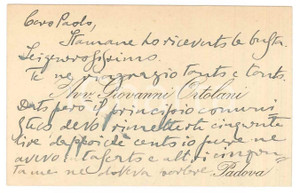 Caro Paolo,
Stamane ho ricevuto la busta.
Seigenerosissimo.
Te ne ringrazio tanto e tanto.
Avv. Giovanni Ortolani
Dato però il principio comuni
stico devo rimetterti cinquanta
lire dappoiché cento io pure ne
avevo e altri cinquan
ta me ne
Padova